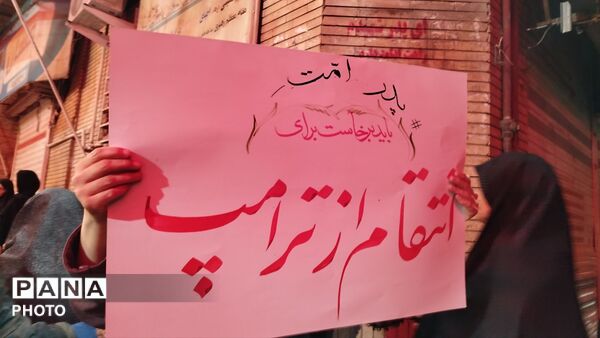 پدر امّتِ
#باید برخاست برای
انتقام از ترامپ
PANA
PHOTO